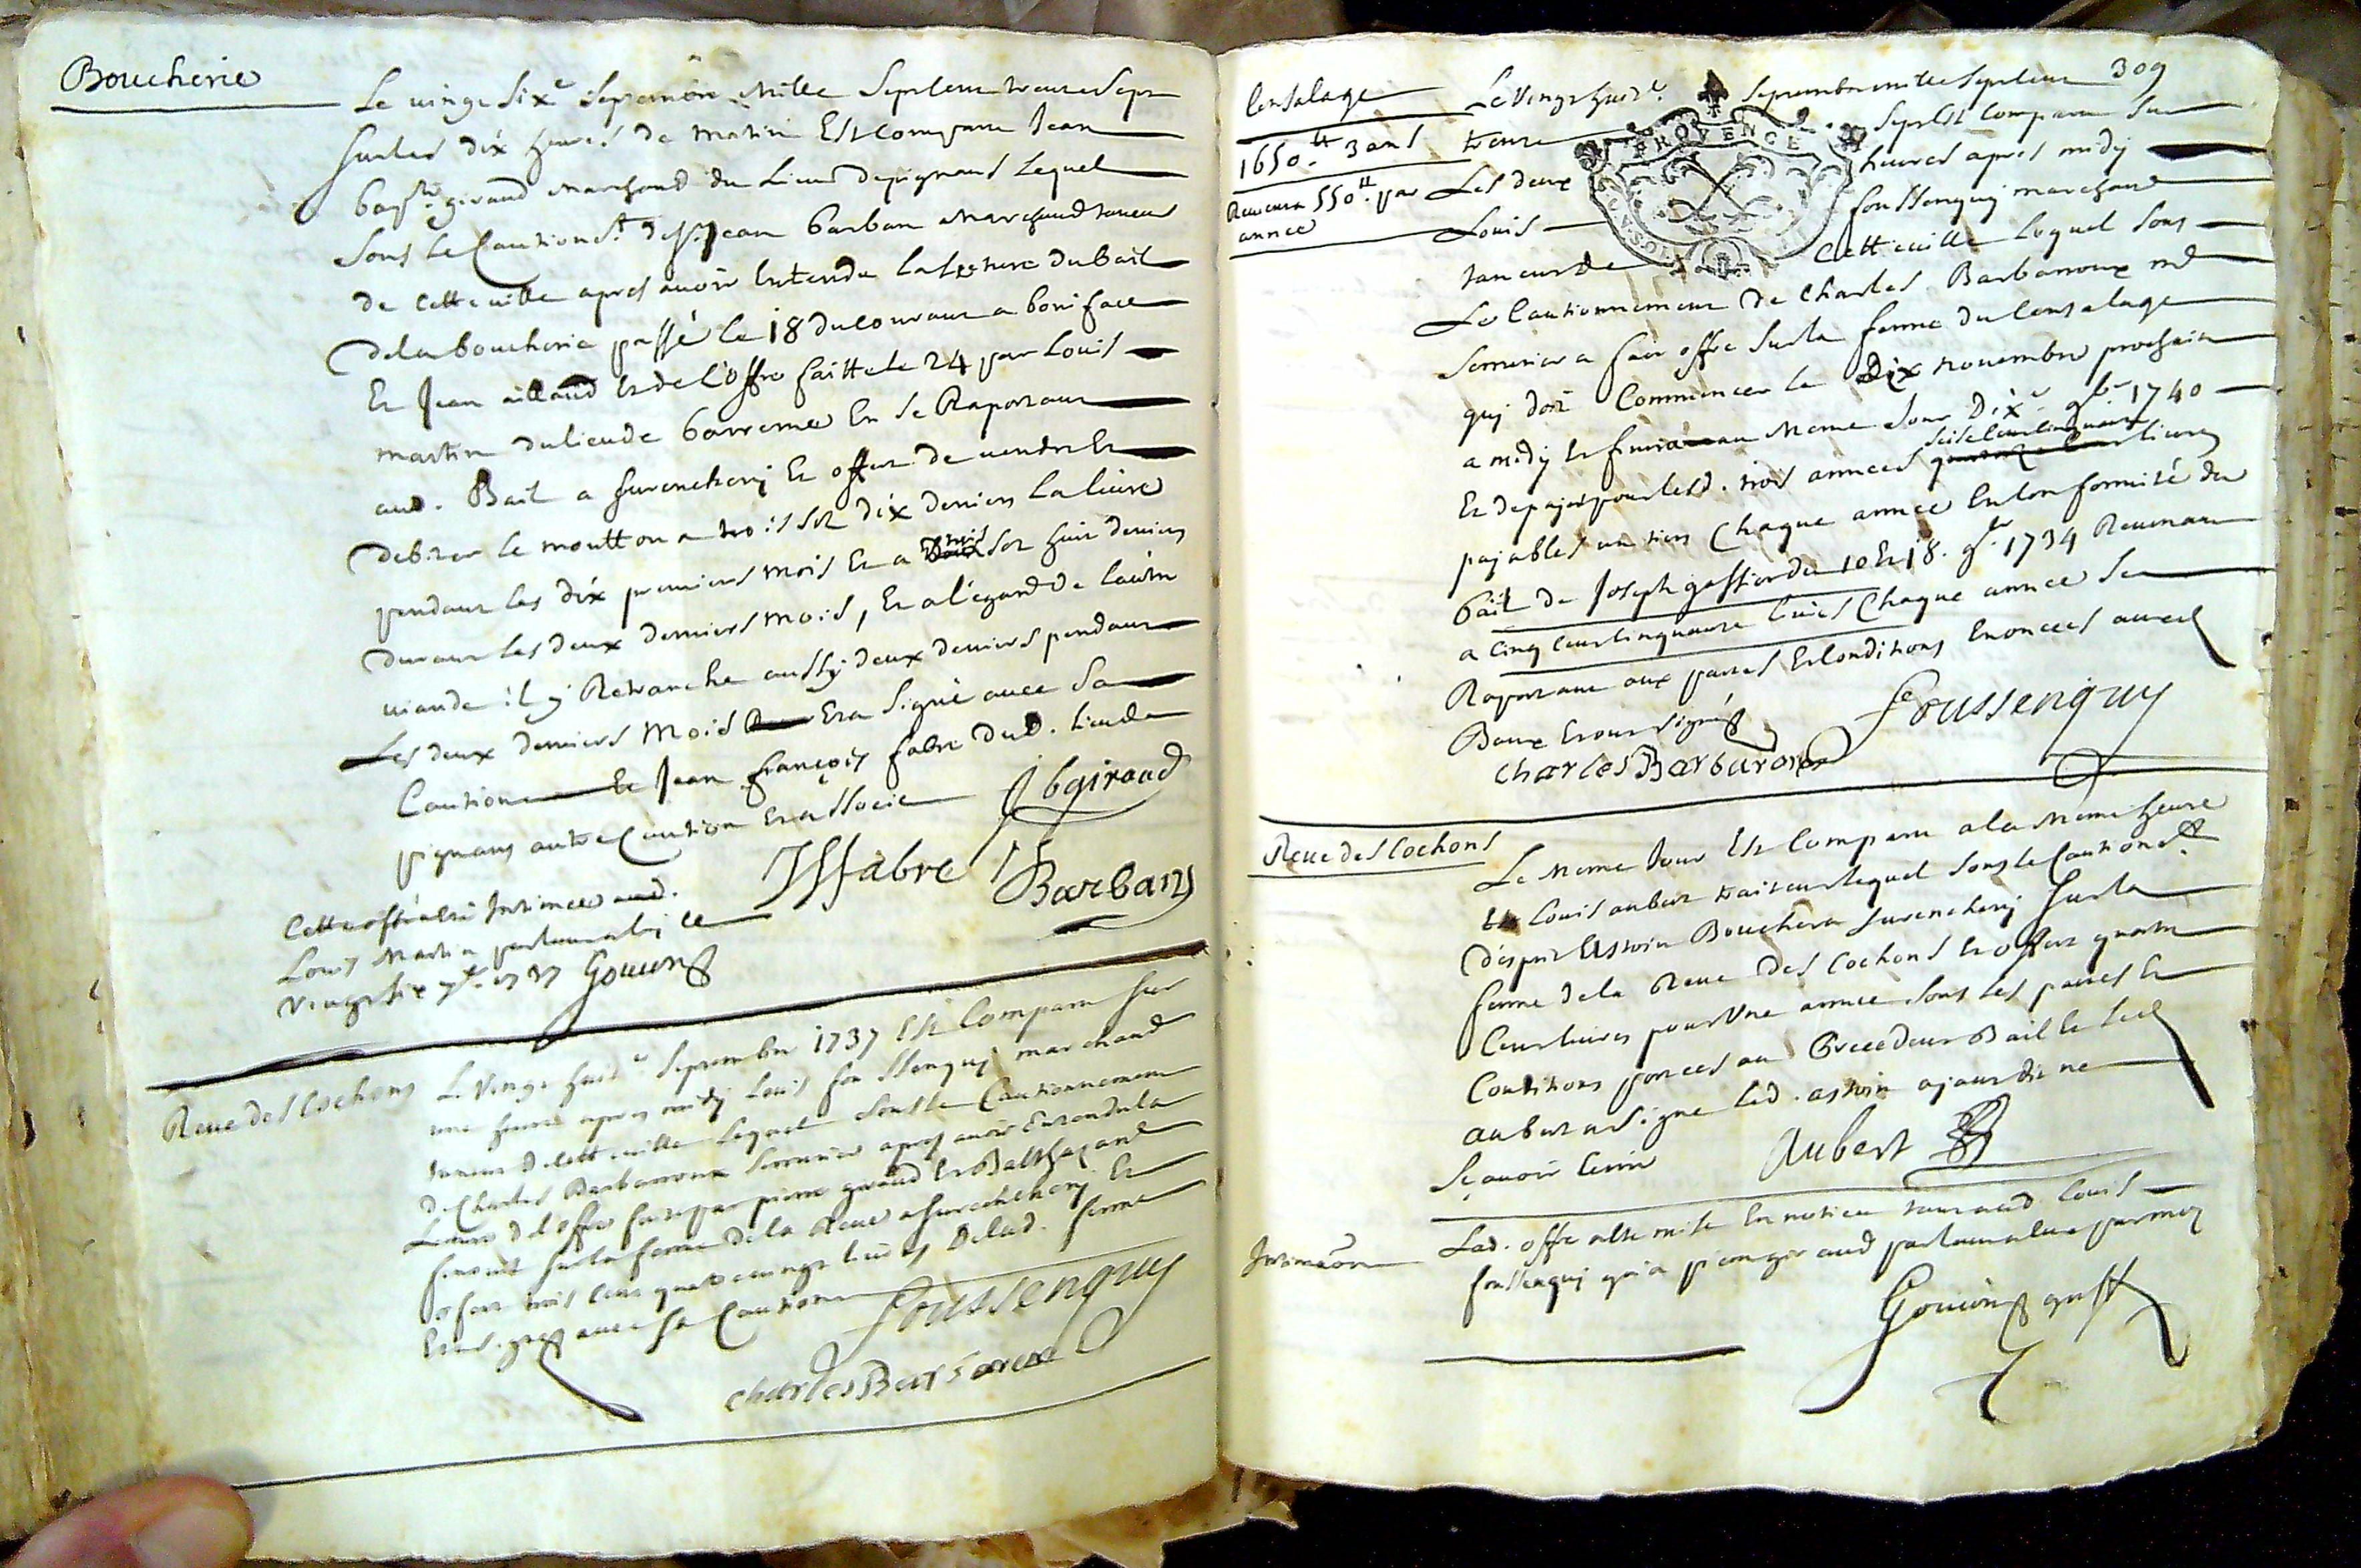 Boucherie
Le vingt six.e Septembre Mille Septcent trente Sept
Sur les dix heures de matin Est Comparu Jean
bap.te giraud Marchand du Lieu de pignans Lequel
Sous le Caution.t de Jean barban Marchand taneur
de Cette ville apres avoir Entendu la Lecture du bail
de la boucherie passé le 18 du Courant a boniface
Et Jean aillaud Et de l'offre faitte le 24 par Louis
martin du lieu de barreme En Se Raportant
aud. Bail a Surencherj Et offert de vendre Et
debiter le moutton a trois Sol dix deniers la livre
pendant les dix premiers mois Et a trois Sol huit deniers
durant les deux derniers mois, Et a l'egard de l'autre
viande il y Retranche aussy deux deniers pendant
Les deux derniers mois Et a Signé avec Sa
Caution Et Jean françois fabre dud. lieu de
pignans autre Caution Et associe
Jbgiraud
JffabreJ
Barban
Cette offre a été Intimee aud.
Louis Martin parlant a luy ce
Vingt six 7bre 1737 Gouin
Reve des Cochons
Le Vingt huit.e Septembre 1737 Est Comparu Sur
une heure apres midy Louis foussenguy marchand
taneur de Cette ville Lequel Sous le Cautionnement
de Charles Barbarroux Serrurier apres avoir Entendu la
Lecture de l'offre faite par pierre giraud Et Balthazard
Sur la ferme de la Reve a Surencherj Et
offert trois Cent quatre vingt livres de lad. ferme
Et ont signé avec Sa Caution
foussenguy
Charles Barbaroux
309
Censalage
1650.tt 3 ans
Revenant 550.tt par
annee
Le Vingt huit.e Septembre mille Septcent
trente Sept Est Comparu Sur
Les deux heures apres midy
Louis foussenguy marchand
taneur de Cette ville Lequel Sous
Le Cautionnement de Charles Barbarroux md
Serrurier a fait offre Sur la ferme du Censalage
quj doit Commencer le Dix novembre prochain
a midy Et finira au meme Jour Dix.e 9bre 1740
Et de payer pour lesd. trois annees seise Cent Cinquante livres
payables un tiers Chaque annee En Conformité du
bail de Joseph gassier du 10 Et 18. 9bre 1734 Revenant
a Cinq Cent Cinquante livres Chaque annee Se
Raportant aux pactes Et Conditions Enoncees aud
Baux Et ont Signé
foussenguy
Charles Barbaroux
PROVENCE
Reve des Cochons
Le Meme Jour Est Comparu a la Meme heure
Louis aubert traiteur lequel Sous le Caution.t
d'esprit Astoin Boucher a Surencherj Sur la
ferme de la Reve des Cochons Et offert quatre
Cent livres pour Une annee Sous les pactes Et
Conditions portees au Precedent Bail Et led
aubert a Signe led. astoin ajant dit ne
Sçavoir Ecrire
Aubert
Intimaōn
Lad. offre a été mise En notice tant aud Louis
foussenguy qu'a pierre giraud parlant a eux par moy
Gouin greff